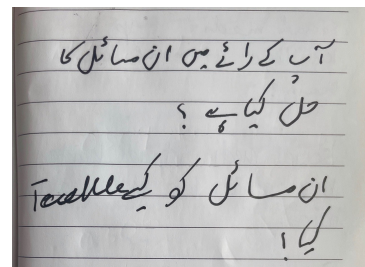 آپ کے رائے میں ان مسائل کا
حل کیا ہے ؟
ان مسائل کو کیسے Tackle
کیا ؟